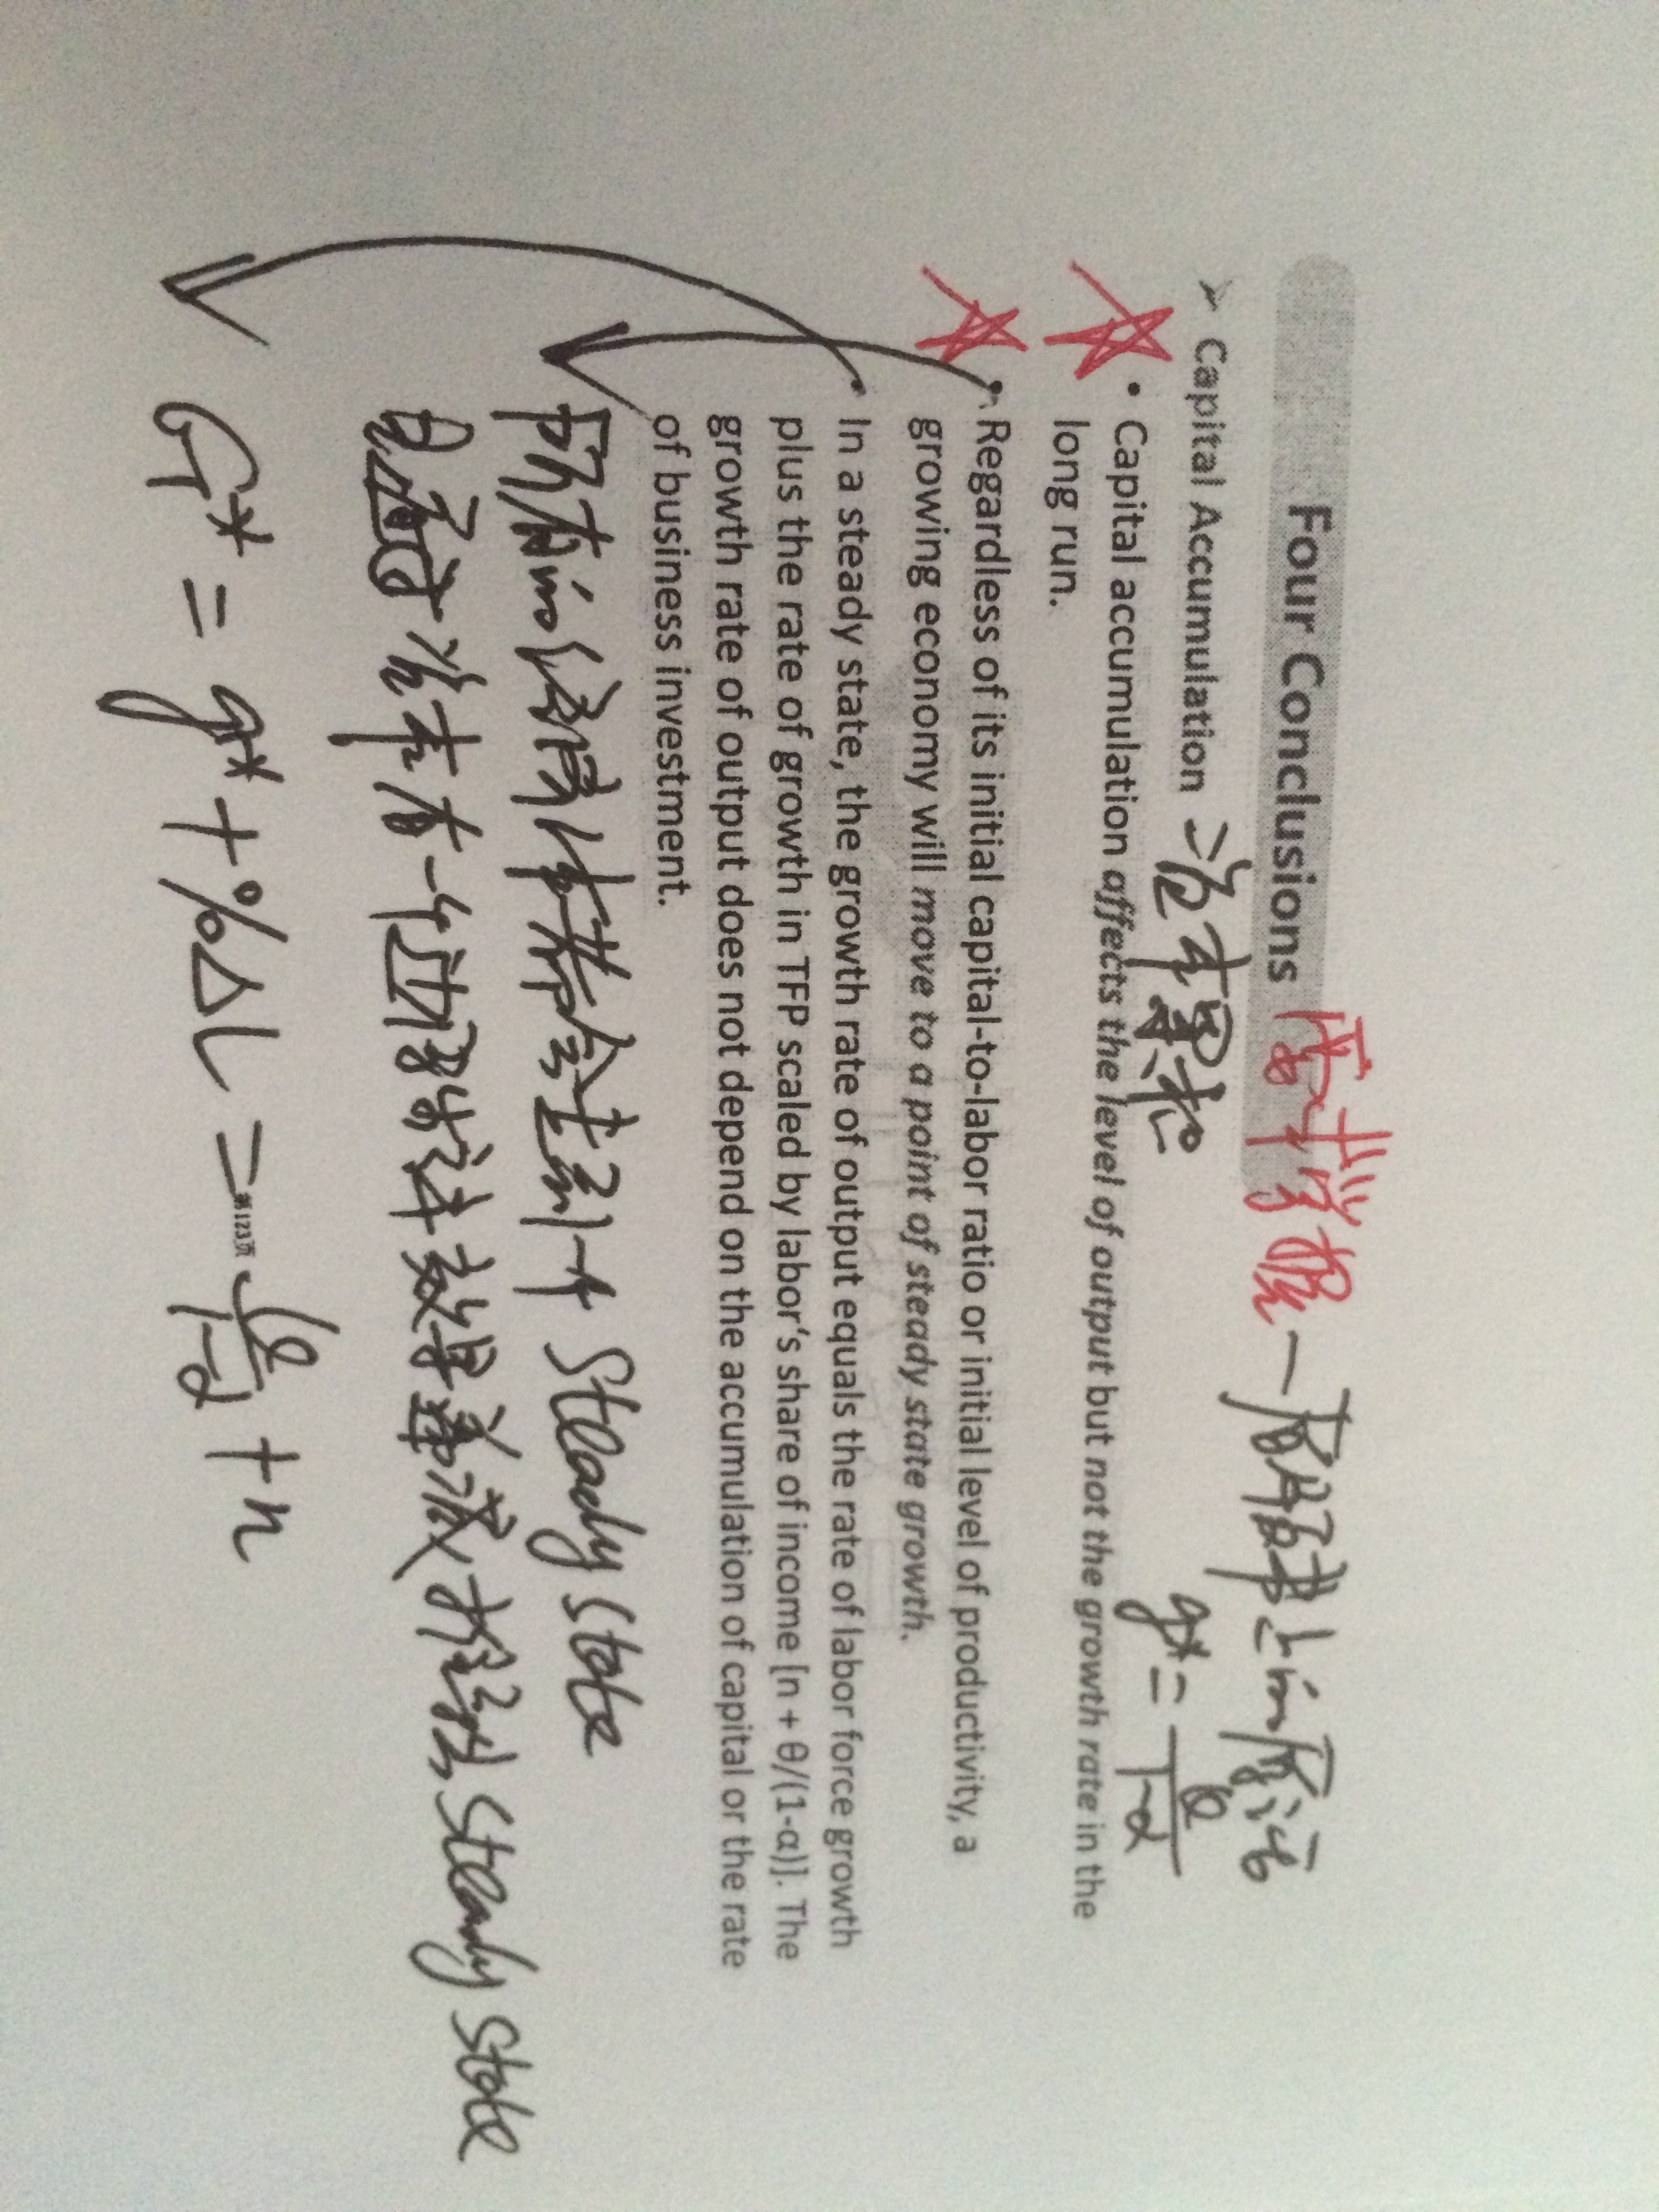 Four Conclusions 要掌握 — 原版书上的原话
➢ Capital Accumulation → 资本累积
g* = θ/(1-α)
• Capital accumulation affects the level of output but not the growth rate in the
long run.
• Regardless of its initial capital-to-labor ratio or initial level of productivity, a
growing economy will move to a point of steady state growth.
• In a steady state, the growth rate of output equals the rate of labor force growth
plus the rate of growth in TFP scaled by labor's share of income [n + θ/(1-α)]. The
growth rate of output does not depend on the accumulation of capital or the rate
of business investment.
所有的经济体都会走到一个 steady state
因为资本有一个边际效果递减 才到的 steady state
G* = g* + %ΔL = θ/(1-α) + n